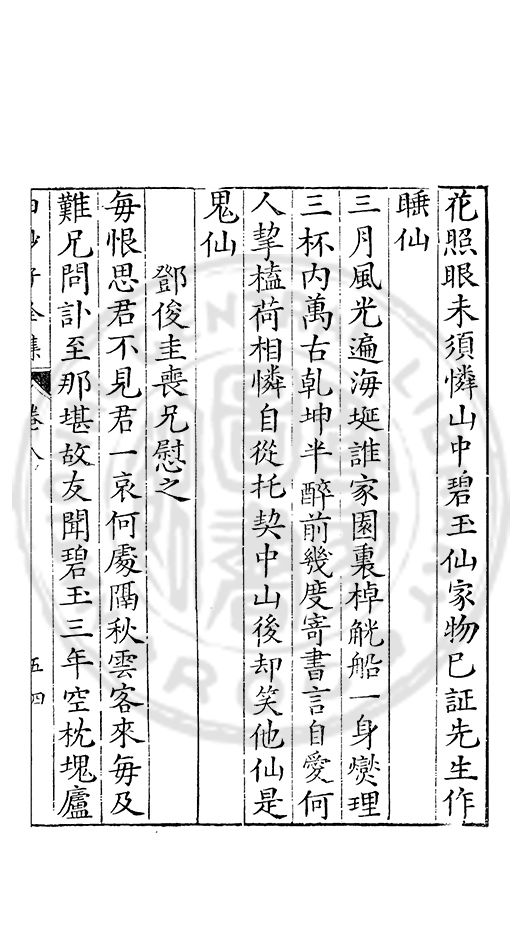 花照眼未須憐山中碧玉仙家物已証先生作
睡仙
三月風光遍海埏誰家園裏棹觥船一身爕理
三杯内萬古乾坤半醉前幾度寄書言自愛何
人挈榼荷相憐自從托契中山後却笑他仙是
鬼仙
鄧俊圭喪兄慰之
每恨思君不見君一哀何處隔秋雲客來每及
難兄問訃至那堪故友聞碧玉三年空枕塊廬
白沙子全集 卷八 五四